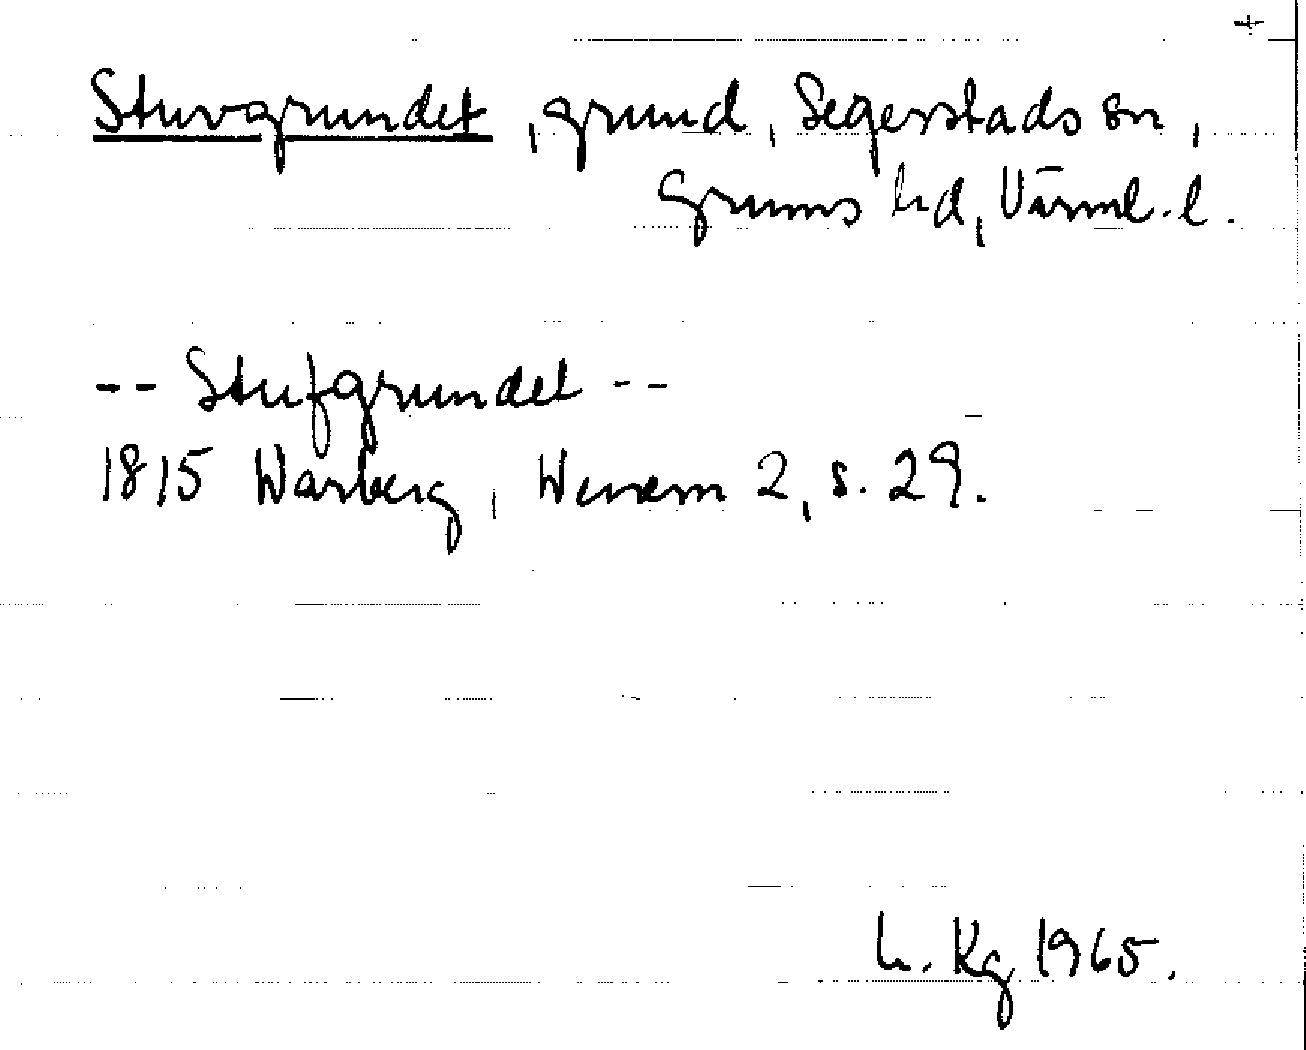 Stuvgrundet, grund, Segerstads sn,
Grums hd, Värml. l.
-- Stufgrundet --
1815 Warberg, Wenern 2, s. 29.
L. Kg 1965.